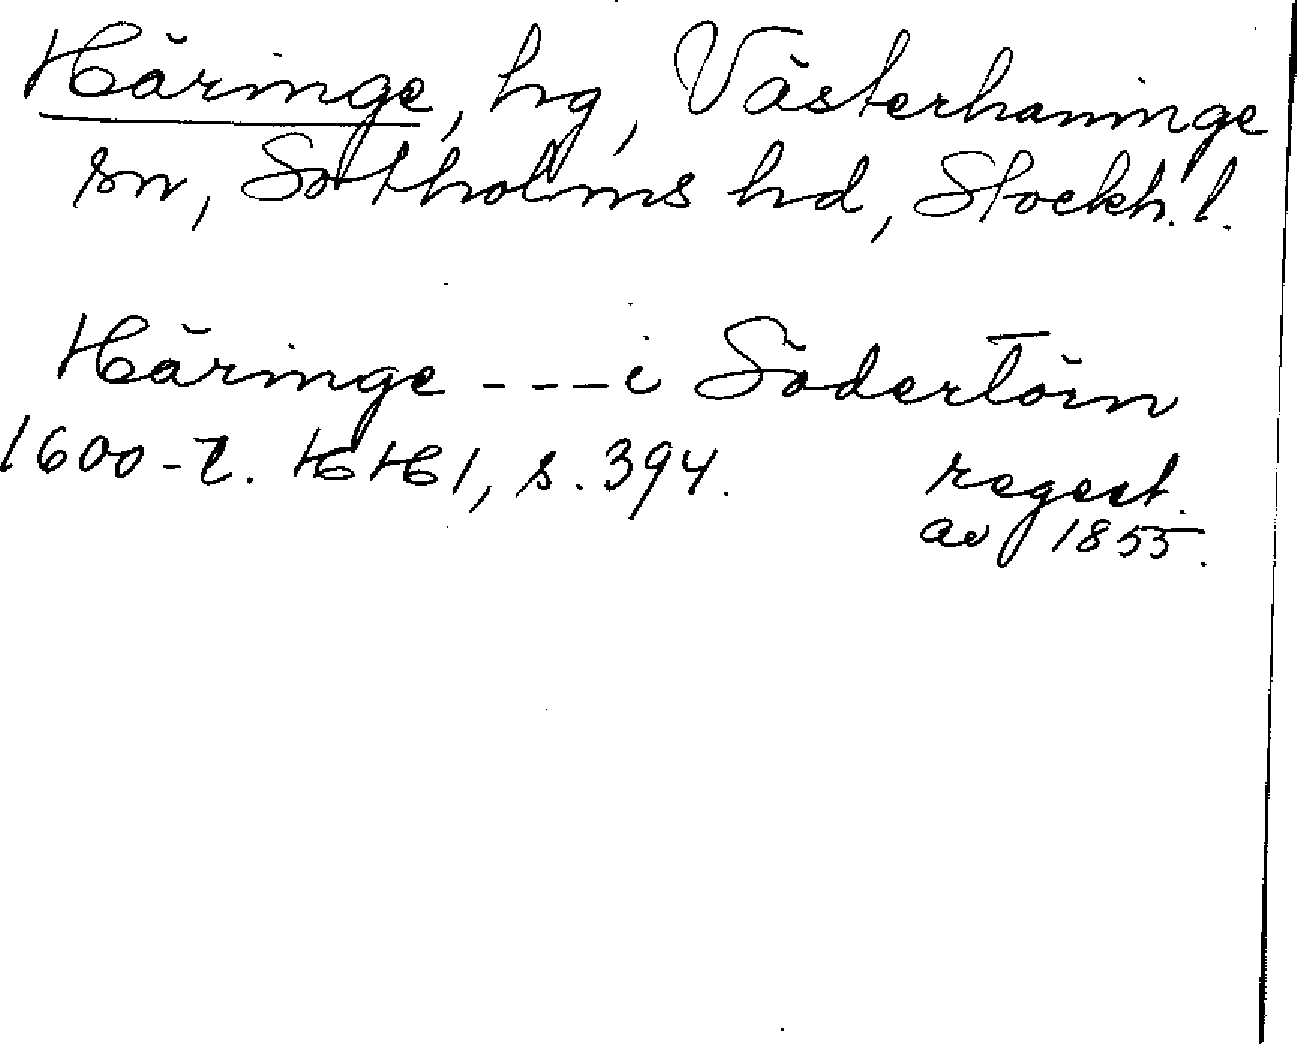 Häringe, hg, Västerhaninge
sn, Sotholms hd, Stockh. l.
Häringe - - - i Södertörn
1600-t. HH 1, s. 394. regest.
av 1855.